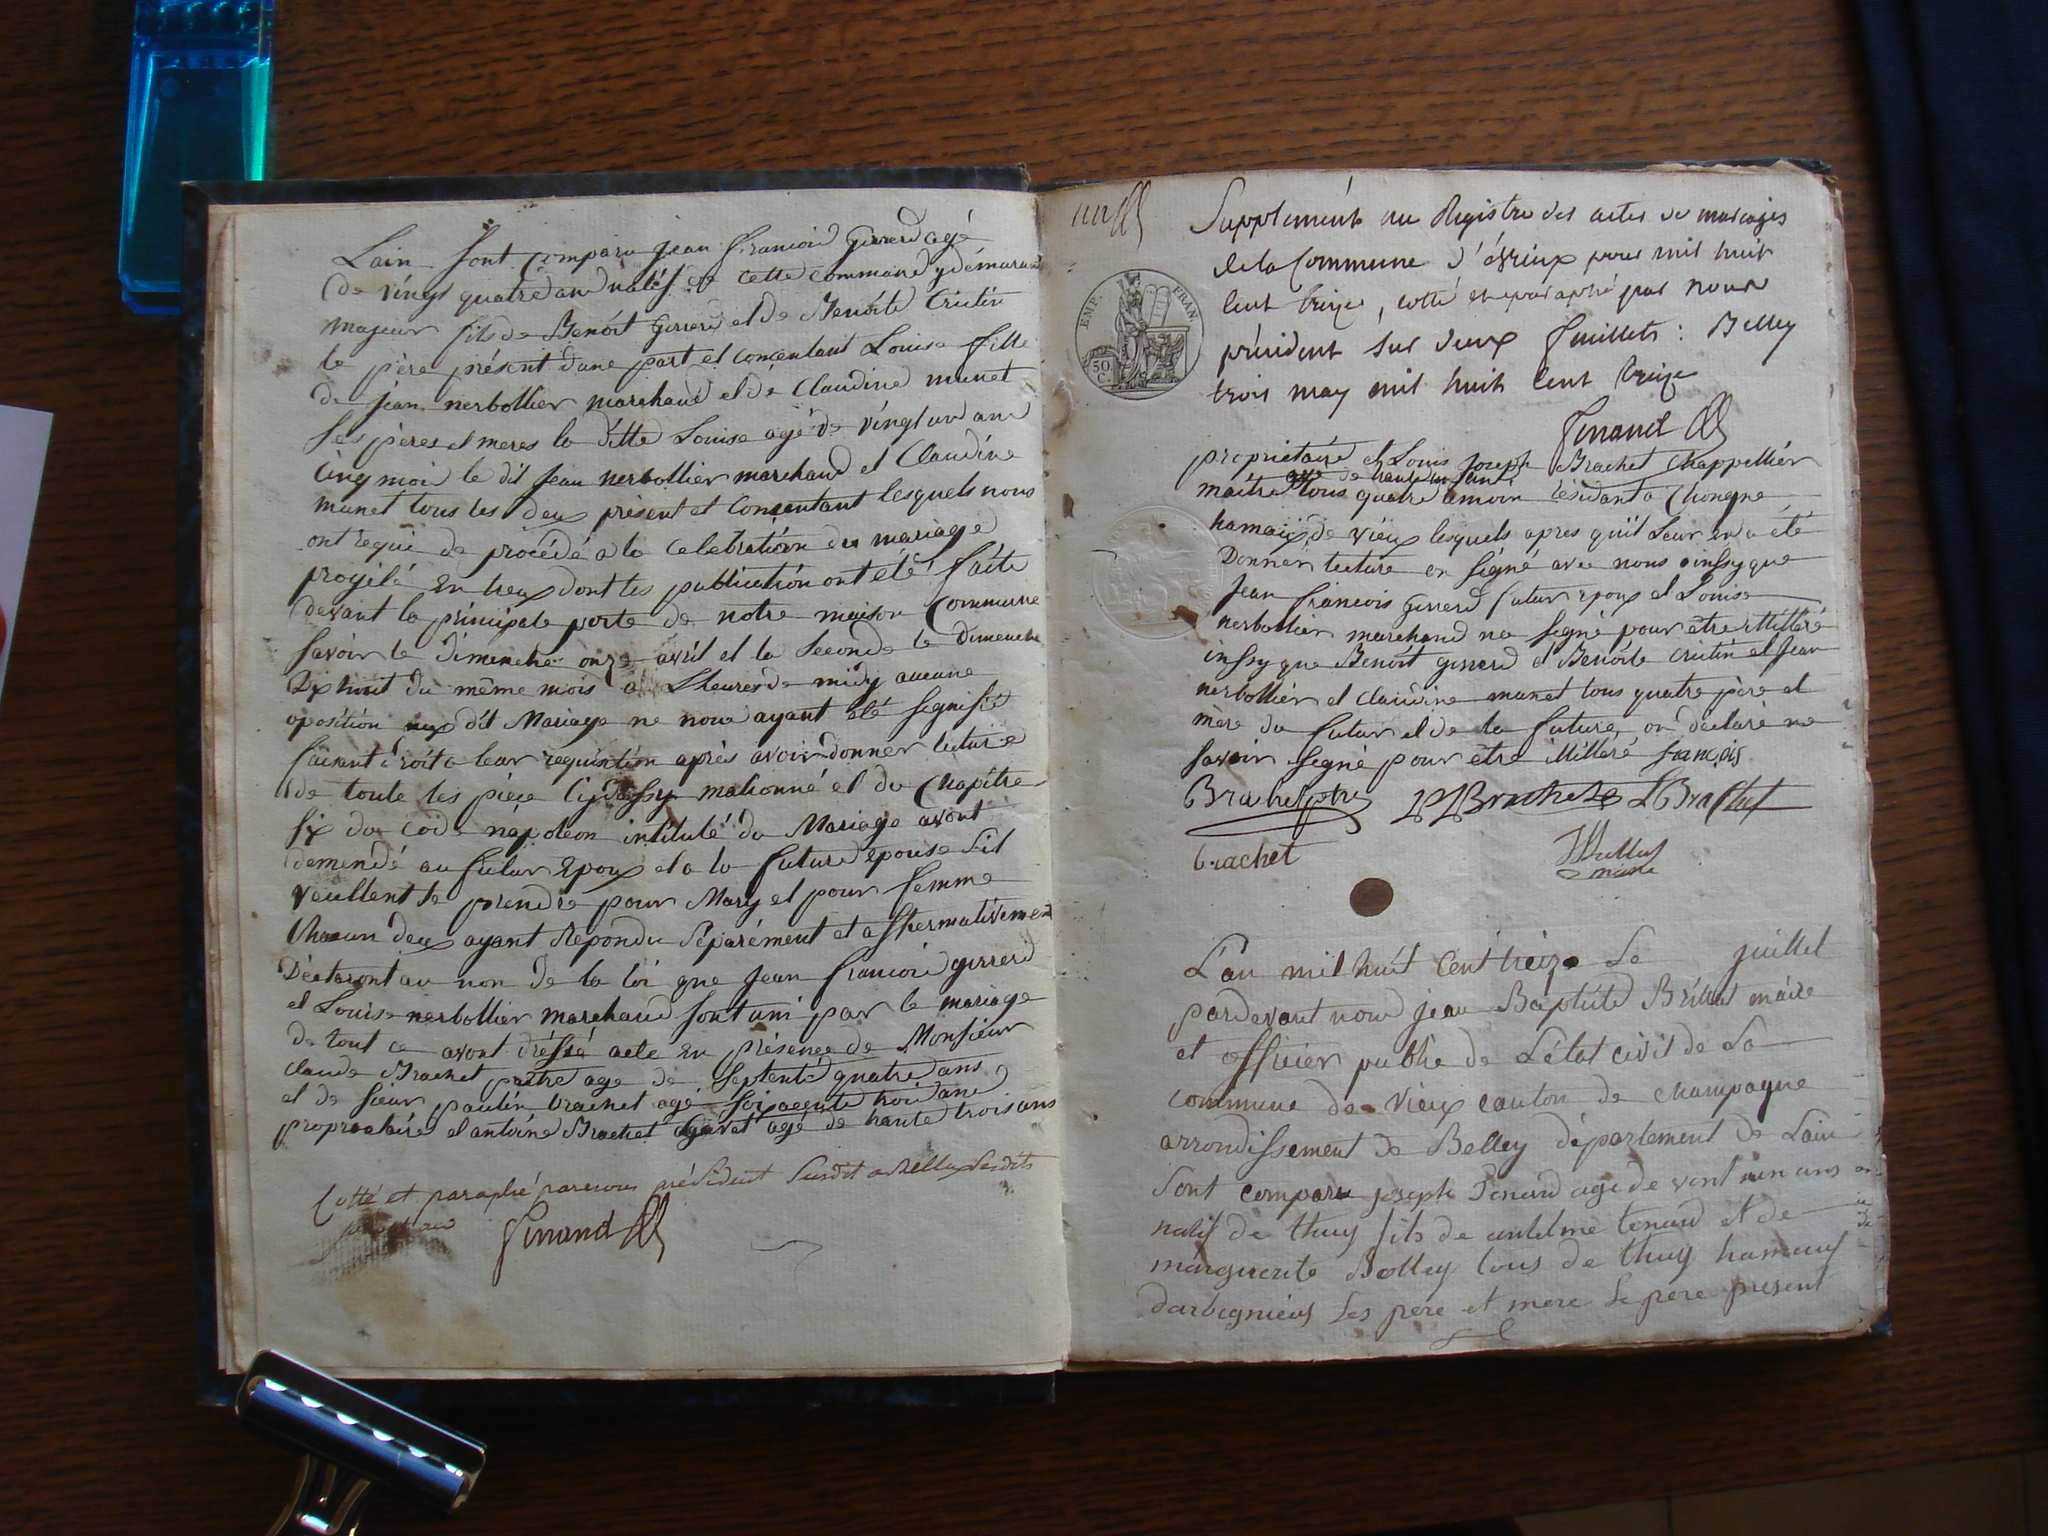 Lain Sont Comparu Jean François Gerrerd agé
de vingt quatre ans natif de cette commune y démurant
majeur fils de Benoit Gerrerd et de Benoite Crutin
le père présent d'une part et concentant Louise fille
de Jean nerbollier marchand et de Claudine munet
ses pères et meres la ditte Louise agé de vingt un ans
Cinq mois le dit Jean nerbollier marchand et Claudine
munet tous les deux présent et Concentant lesquels nous
ont requi de procédé a la celebration du mariage
projété entreux dont les publication ont été faite
devant la principale porte de notre maison Commune
savoir le dimenche onze avril et la seconde le dimenche
Dix huit du même mois a Lheures de midy aucune
oposition aux dit Mariage ne nous ayant été Segnifié
faisant droit a leur requisition après avoir donner lecture
de toute les pièçe Cy dessy mationné et du Chapitre
six du code napoleon intitulé du Mariage avont
demendé au futur Epoux et a la future épouse Sil
veullent se prendre pour Mary et pour femme
Chacun deux ayant Répondu Séparément et affirmativement
Déclaront au non de la loi que Jean françois gerrerd
et Louise nerbollier marchand sont uni par le mariage
de tout ce avont dréssé acte en présence de Monsieur
claude Brachet prètre age de septente quatre ans
et de sieur paulin brachet agé soixcente trois ans
propriétaire et antoine Brachet agé de trante trois ans
Cotté et paraphé par nous président Susdit a Belley Lesdits
jour et an Genand
Supplément au Registre des actes de mariages
de la Commune d'évieux pour mil huit
Cent treize, cotté et paraphé par nous
président sur deux feuillets : Belley
trois may mil huit Cent treize
EMP. FRAN.
50 C.
Genand
propriétaire et Louis Joseph Brachet Chappellier
age de trante un ans
maitre tous quatre temoin residant a Chongne
hamaix de vieux lesquels apres quil Leur en a été
Donner lecture onSégné avec nous einssy que
Jean françois Gerrerd futur epoux et Louise
nerbollier marchand na Segné pour être illitéré
einssy que Benoit gerrerd et Benoite crutin et Jean
nerbollier et claudine munet tous quatre père et
mère du futur et de la future on déclaré ne
savoir Segné pour être illitéré francois
Brachet ptre Brachet L Brachet
brachet
maire
L'an mil huit Cent treize Le juillet
pardevant nous Jean Baptiste Brillat maire
et officier public de L'état civil de La
commune de Vieux canton de champagne
arrondissement de Belley département de Lain
sont comparu joseph Tenard age de vent un ans
natif de thuy fils de antelme tenard et de
marguerite Bolley tous de thuy hameaux
darbignieux Ses père et mere Le pere present